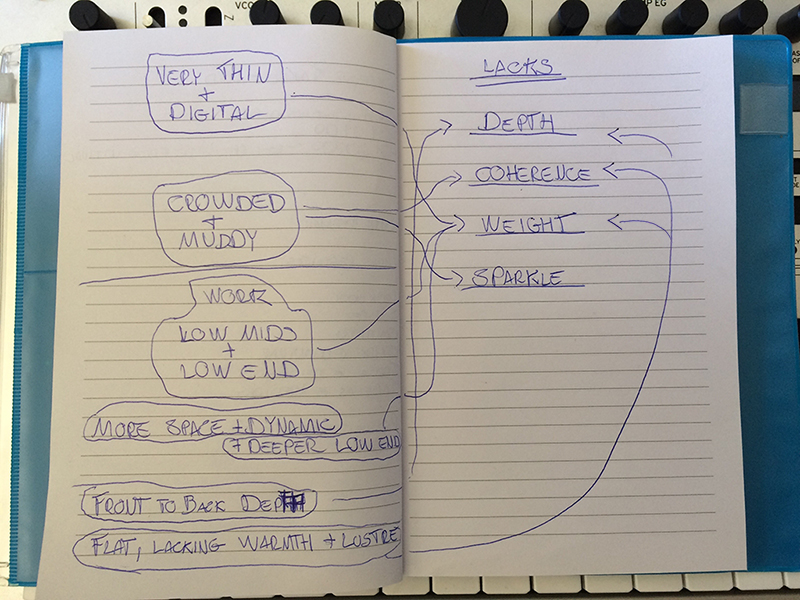 VCO
MP EG
VERY THIN
+
DIGITAL
CROWDED
+
MUDDY
WORK
LOW MIDS
+
LOW END
MORE SPACE + DYNAMIC
+ DEEPER LOW END
FRONT TO BACK DEPTH
FLAT, LACKING WARMTH + LUSTRE
LACKS
DEPTH
COHERENCE
WEIGHT
SPARKLE